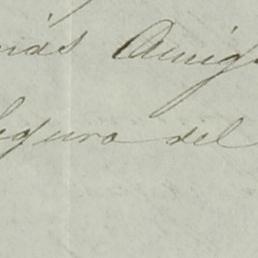 más Amig
Segura del